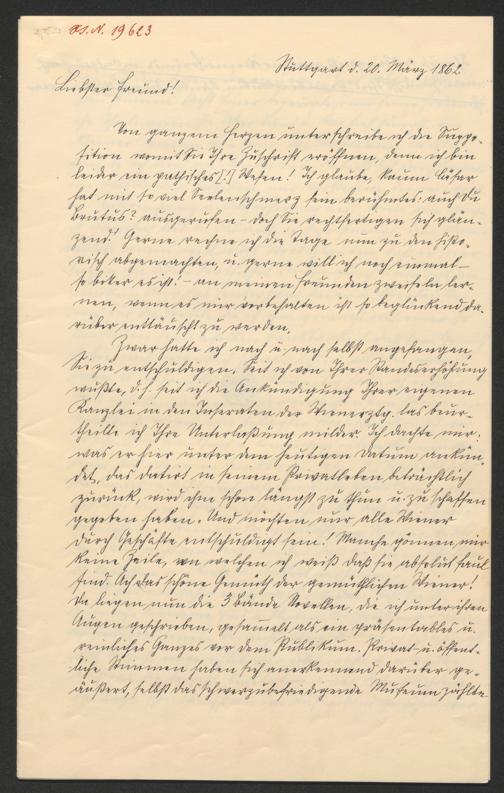 H.I.N. 19623
Stuttgart d. 20. März 1862
Liebster Freund!
Von ganzem Herzen unterschreibe ich die Suppo-
sition womit Sie Ihre Zuschrift eröffnen, denn ich bin
leider ein pathisches[!] Wesen! Ich glaube, kaum Cäsar
hat mit so viel Seelenschmerz sein berühmtes: auch du
Brutus? ausgerufen – doch Sie rechtfertigen sich glän-
zend. Gerne rechne ich die Tage nun zu den histo-
risch abgemachten, u. gerne will ich noch einmal –
so bitter es ist! – an meinen Freunden zweifeln ler-
nen, wenn es mir vorbehalten ist so beglückend da-
rüber enttäuscht zu werden.
Zwar hatte ich nach u. nach selbst angefangen,
Sie zu entschuldigen. Seit ich von Ihrer Standeserhöhung
wußte, d.h. seit ich die Ankündigung Ihrer eigenen
Kanzlei in den Inseraten der Wienerztg. las beur-
theilte ich Ihre Unterlaßung milder. Ich dachte mir:
was er hier unter dem heutigen Datum ankün-
det, das datirt in seinem Privatleben beträchtlich
zurück, wird ihm schon längst zu thun u. zu schaffen
gegeben haben. Und möchten nur alle Wiener
durch Geschäfte entschuldigt sein! Manche gönnen mir
keine Zeile, von welchen ich weiß daß sie absolut faul
sind. Ach das schöne Gemüth der gemüthlichen Wiener!
Da liegen nun die 3 Bände Novellen, die ich unter ihren
Augen geschrieben, gesam̄elt als ein präsentables u.
reinliches Ganzes vor dem Publikum. Privat- u. öffent-
liche Stimmen haben sich anerkennend darüber ge-
äußert, selbst das schwerzubefriedigende Museum zählte